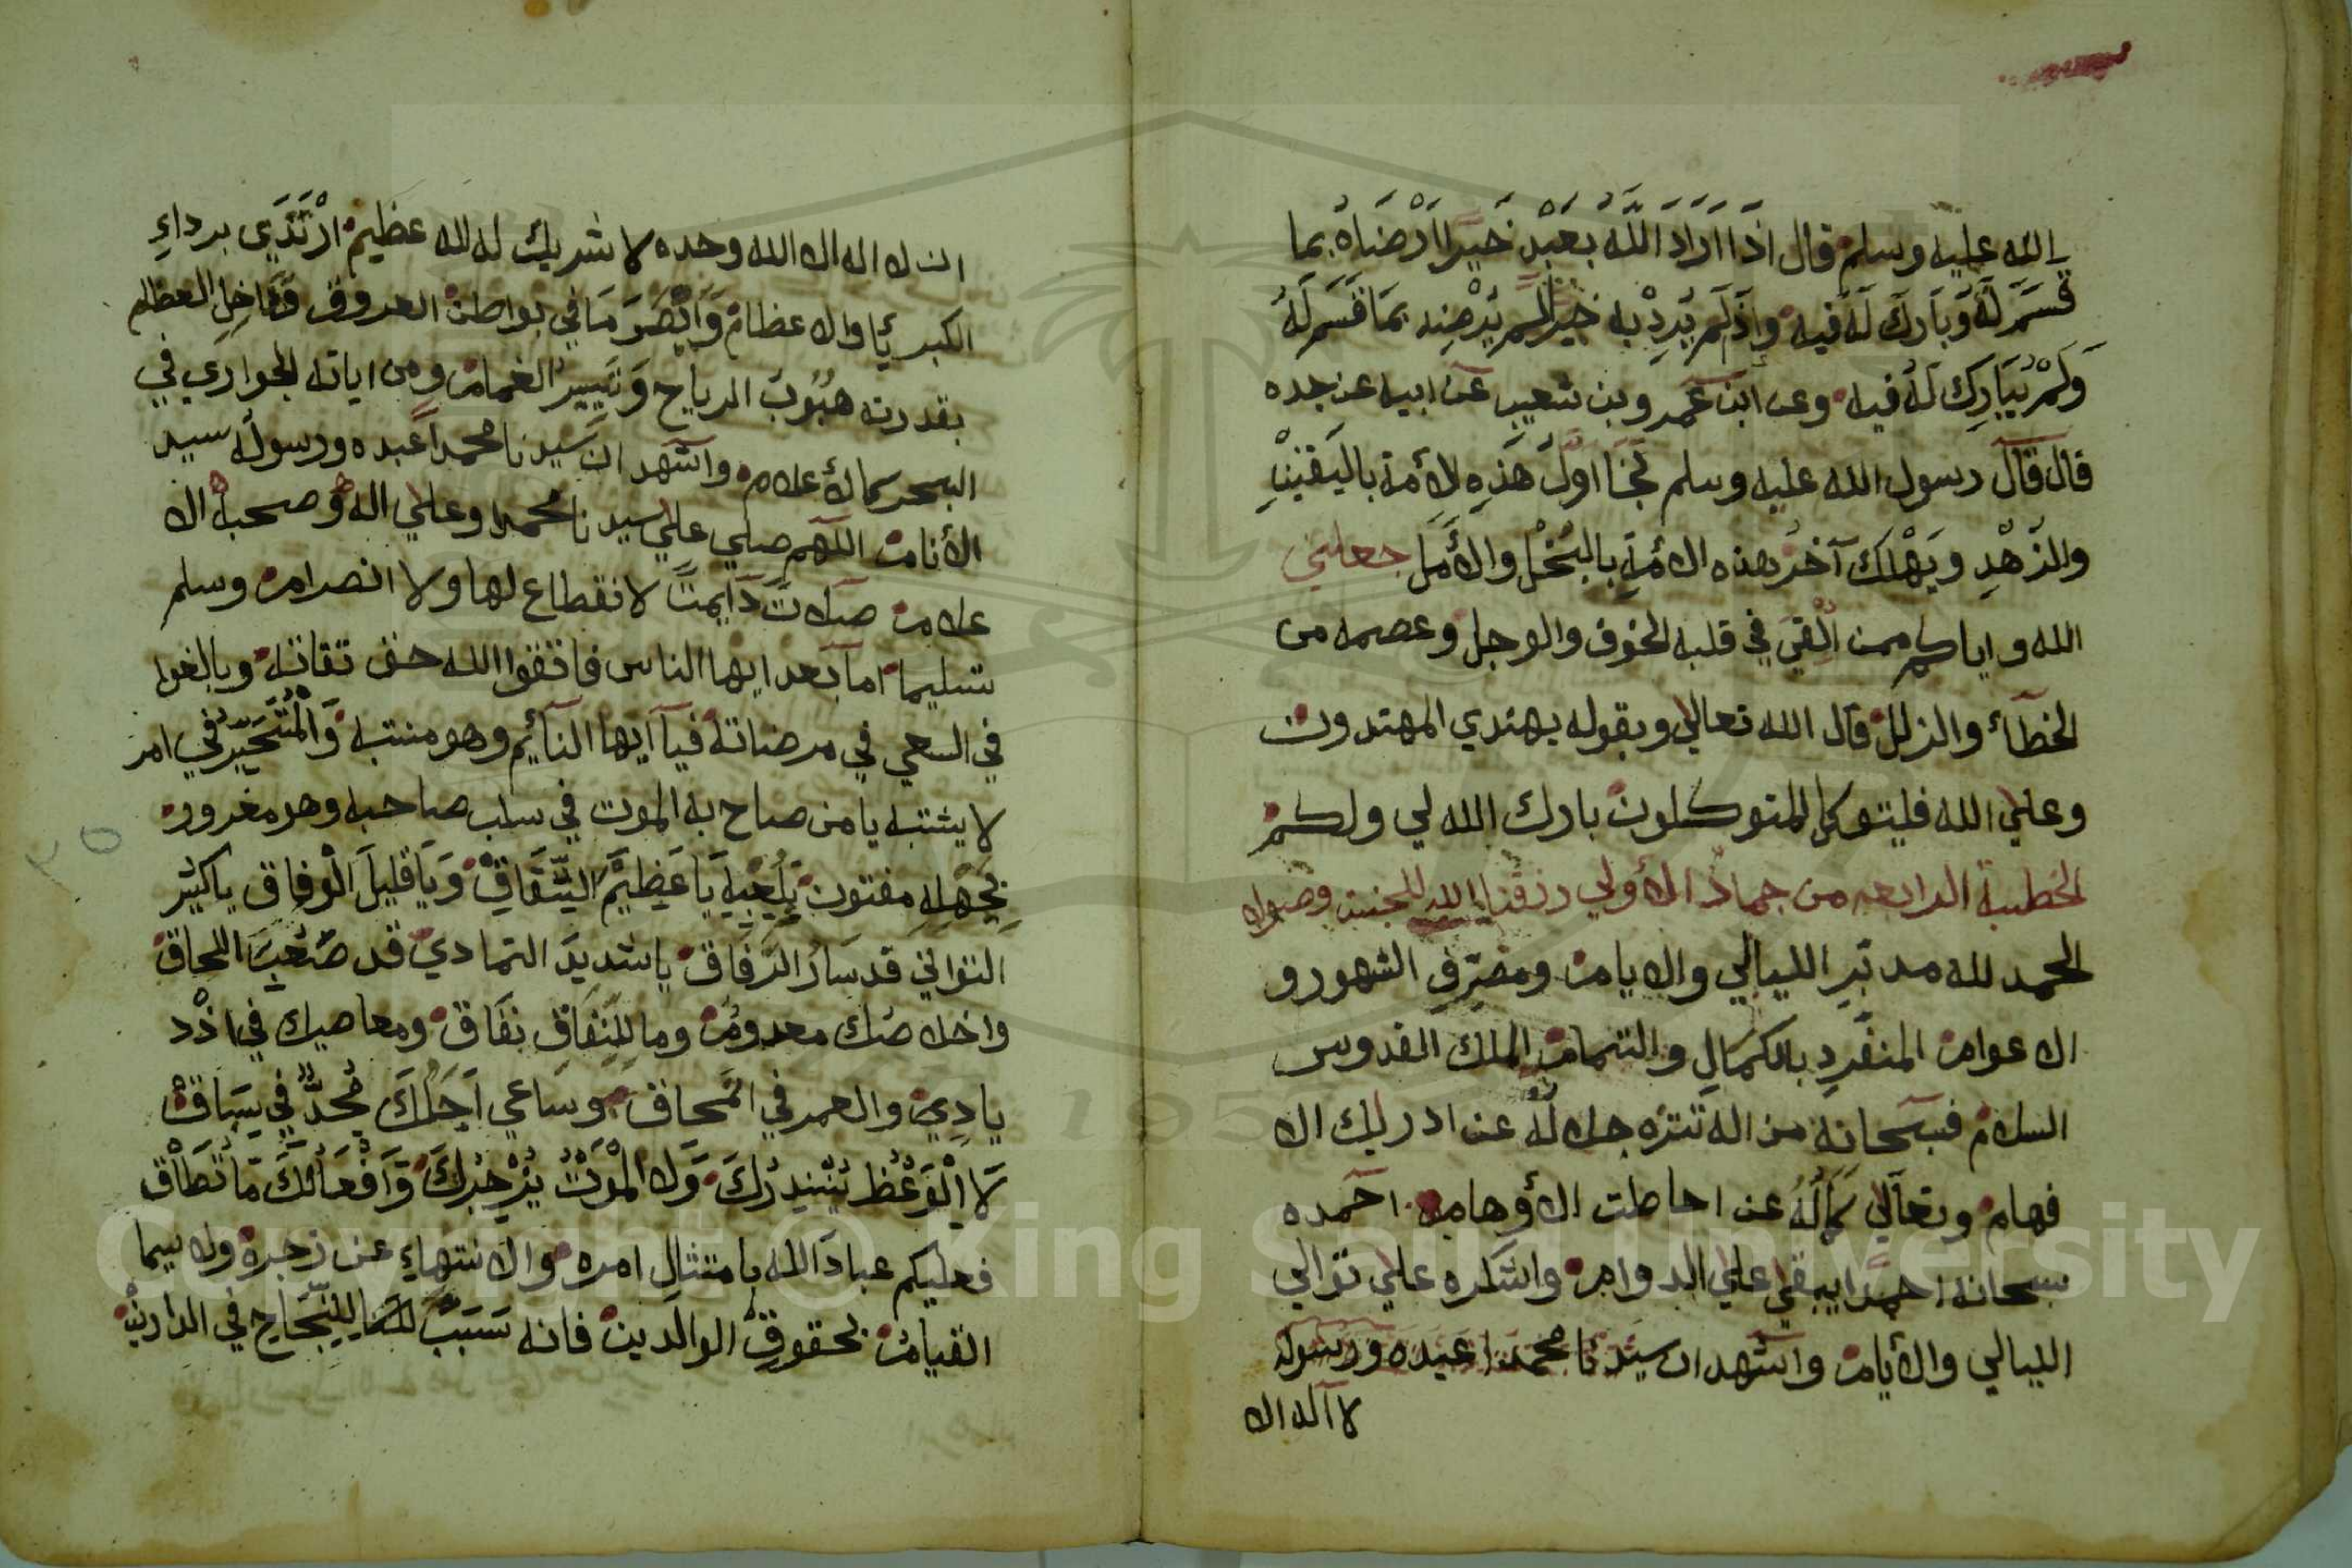 الله عليه وسلم قال اذا اراد الله بعبد خيرا ارضاه بما
قسم له وبارك له فيه واذلم يرد به خيرالم يرضه بما قسم له
ولم يبارك له فيه وعن ابن عمر وبن شعيب عن ابيه عن جده
قال قال رسول الله عليه وسلم نجا اول هذه الأمة باليقين
والزهد ويهلك آخر هذه الأمة بالبخل والأمل جعلني
الله واياكم ممن القي في قلبه الخوف والوجل وعصمه من
الخطاء والزلل قال الله تعالي وبقوله يهتدي المهتدون
وعلي الله فليتوكل المتوكلون بارك الله لي ولكم
الخطبة الرابعه من جماد الأولي رزقنا الله
الحمد لله مدبر الليالي والايام ومصرف الشهور و
الاعوام المنفرد بالكمال والتمام الملك القدوس
السلام فسبحانه من اله تنزه جلاله عن ادريك الا
فهام وتعالي كماله عن احاطت الأوهام احمده
سبحانه احمدا يبقي علي الدوام واشكره علي توالي
الليالي والأيام واشهد ان سيدنا محمدا عبده ورسوله
لا آله الا
ان لا اله الا الله وحده لا شريك له لله عظيم ارتدي برداء
الكبريأ والاعظام وابصر ما في بواطن العروق وداخل العظام
بقدرته هبوب الرياح وتيير الغمام ومن اياته الجواري في
البحر كالأعلام واشهد ان سيدنا محمدا عبده ورسوله سيد
الأنام اللهم صلي علي سيدنا محمد وعلي اله وصحبه الا
علام صلات دايمت لانقطاع لها ولا انصرام وسلم
تسليما اما بعد ايها الناس فاتقوا الله حق تقاته وبالغوا
في السعي في مرضاته فيا ايها النأيم وهو منتبه والمتحير في امر
لا يشتبه يا من صاح به الموت في سلب صاحبه وهو مغرور
بجهله مفتون بلعبه يا عظيم الشقاق ويا قليل الوفاق ياكثير
التواني قد سار الرفاق يا شديد التمادي قد صعب اللحاق
واخلاصك معدوم وما للنفاق نفاق ومعاصيك في ازد
يادي والعمر في المحاق وساعي اجلك مجد في سباق
لا الوعظ ينذرك ولا الموت يزجرك وافعالك ما تطاق
فعليكم عباد الله بامتثال امره والانتهاء عن زجره ولاسيما
القيام بحقوق الوالدين فانه سبب للنجاح في الدارين